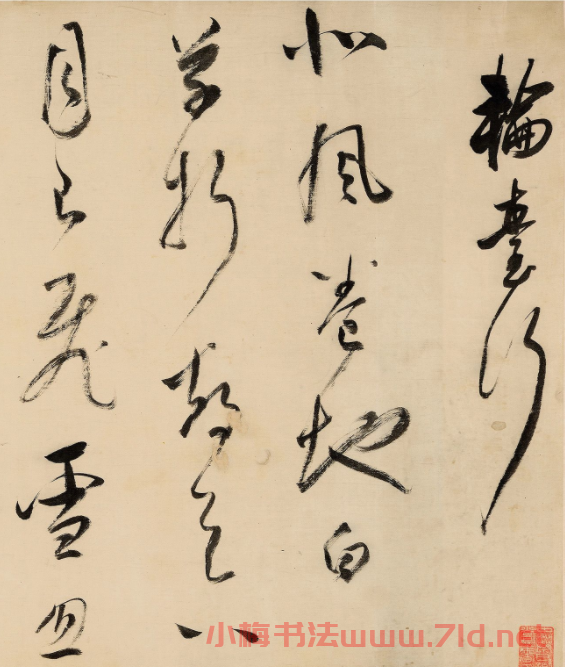 輪臺行
北風卷地白
草折胡天八
月即飛雪忽
小梅书法www.7ld.net